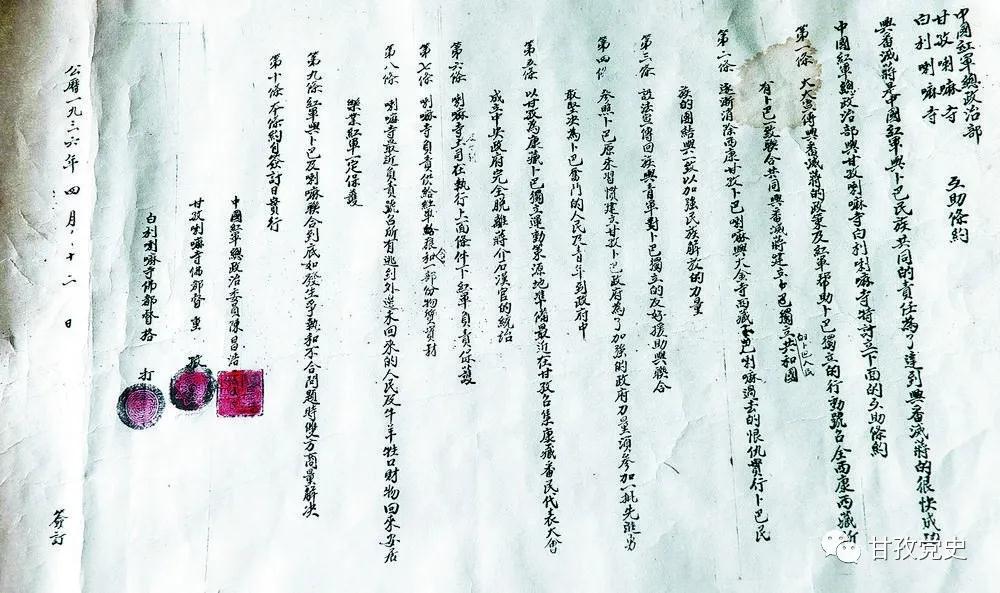 中國紅軍總政治部
甘孜喇嘛寺
白利喇嘛寺
互助條約
興番滅蔣是中國紅軍與卜巴民族共同的責任為了達到興番滅蔣的很快成功
中國紅軍總政治部與甘孜喇嘛寺白利喇嘛寺特訂立下面的互助條約
第一條 大大宣傳興番滅蔣的政策及紅軍幫助卜巴獨立的行動號召全西康西藏所
有卜巴一致聯合共同興番滅蔣建立卜巴獨立共和國
第二條 逐漸消除西康甘孜卜巴喇嘛與大金寺西藏卜巴喇嘛過去的恨仇實行卜巴民
族的團結與一致以加強民族解放的力量
第三條 設法宣傳回族與青軍對卜巴獨立的友好援助與聯合
第四條 參照卜巴原來習慣建立甘孜卜巴政府為了加強的政府力量須參加一批先進勇
敢堅決為卜巴奮鬥的人民及青年到政府中
第五條 以甘孜為康藏卜巴獨立運動策源地準備最近在甘孜召集康藏番民代表大會
成立中央政府完全脫離蔣介石漢官的統治
第六條 喇嘛寺土司在執行上面條件下紅軍負責保護
第七條 喇嘛寺負責供給紅軍粮和部份物質資材
第八條 喇嘛寺最近負責號召所有逃到外邊未回來的人民及牛羊牲口財物回來安居
樂業紅軍一定保護
第九條 紅軍與卜巴及喇嘛聯合到底如發生爭執和不合問題時雙方商量解決
第十條 本條約自簽訂日實行
中國紅軍總政治委員陳昌浩
甘孜喇嘛寺佛都督
白利喇嘛寺佛都督格 打
公曆一九三六年四月十二日 簽訂
甘孜党史